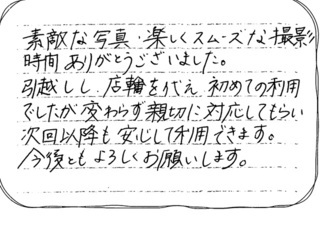 素敵な写真・楽しくスムーズな撮影
時間ありがとうございました。
引越しし、店輪を代え初めての利用
でしたが変わらず親切に対応してもらい
次回以降も安心して利用できます。
今後ともよろしくお願いします。